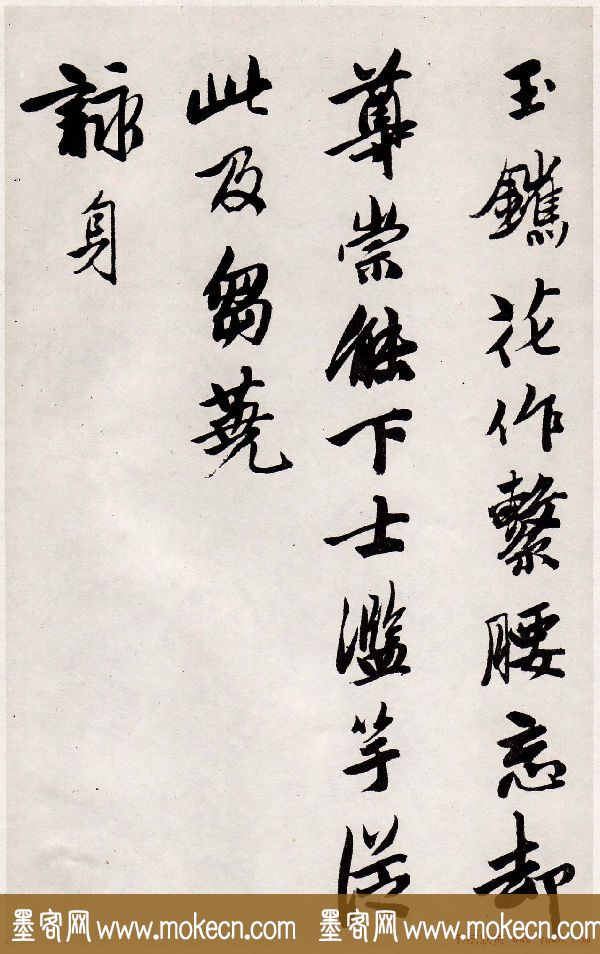 玉鑴花作繫腰忘却
尊崇能下士濫竽從
此及芻蕘
詠身
墨客网 www.mokecn.com 墨客网 www.mokecn.com